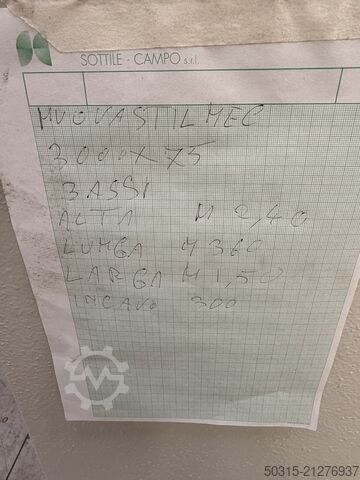 SOTTILE - CAMPO s.r.l.
NUOVA STILMEC
3000X75
3 ASSI
ALTA M 2,40
LUNGA M 360
LARGA M 1,50
INCAVO 300
50315-21276937